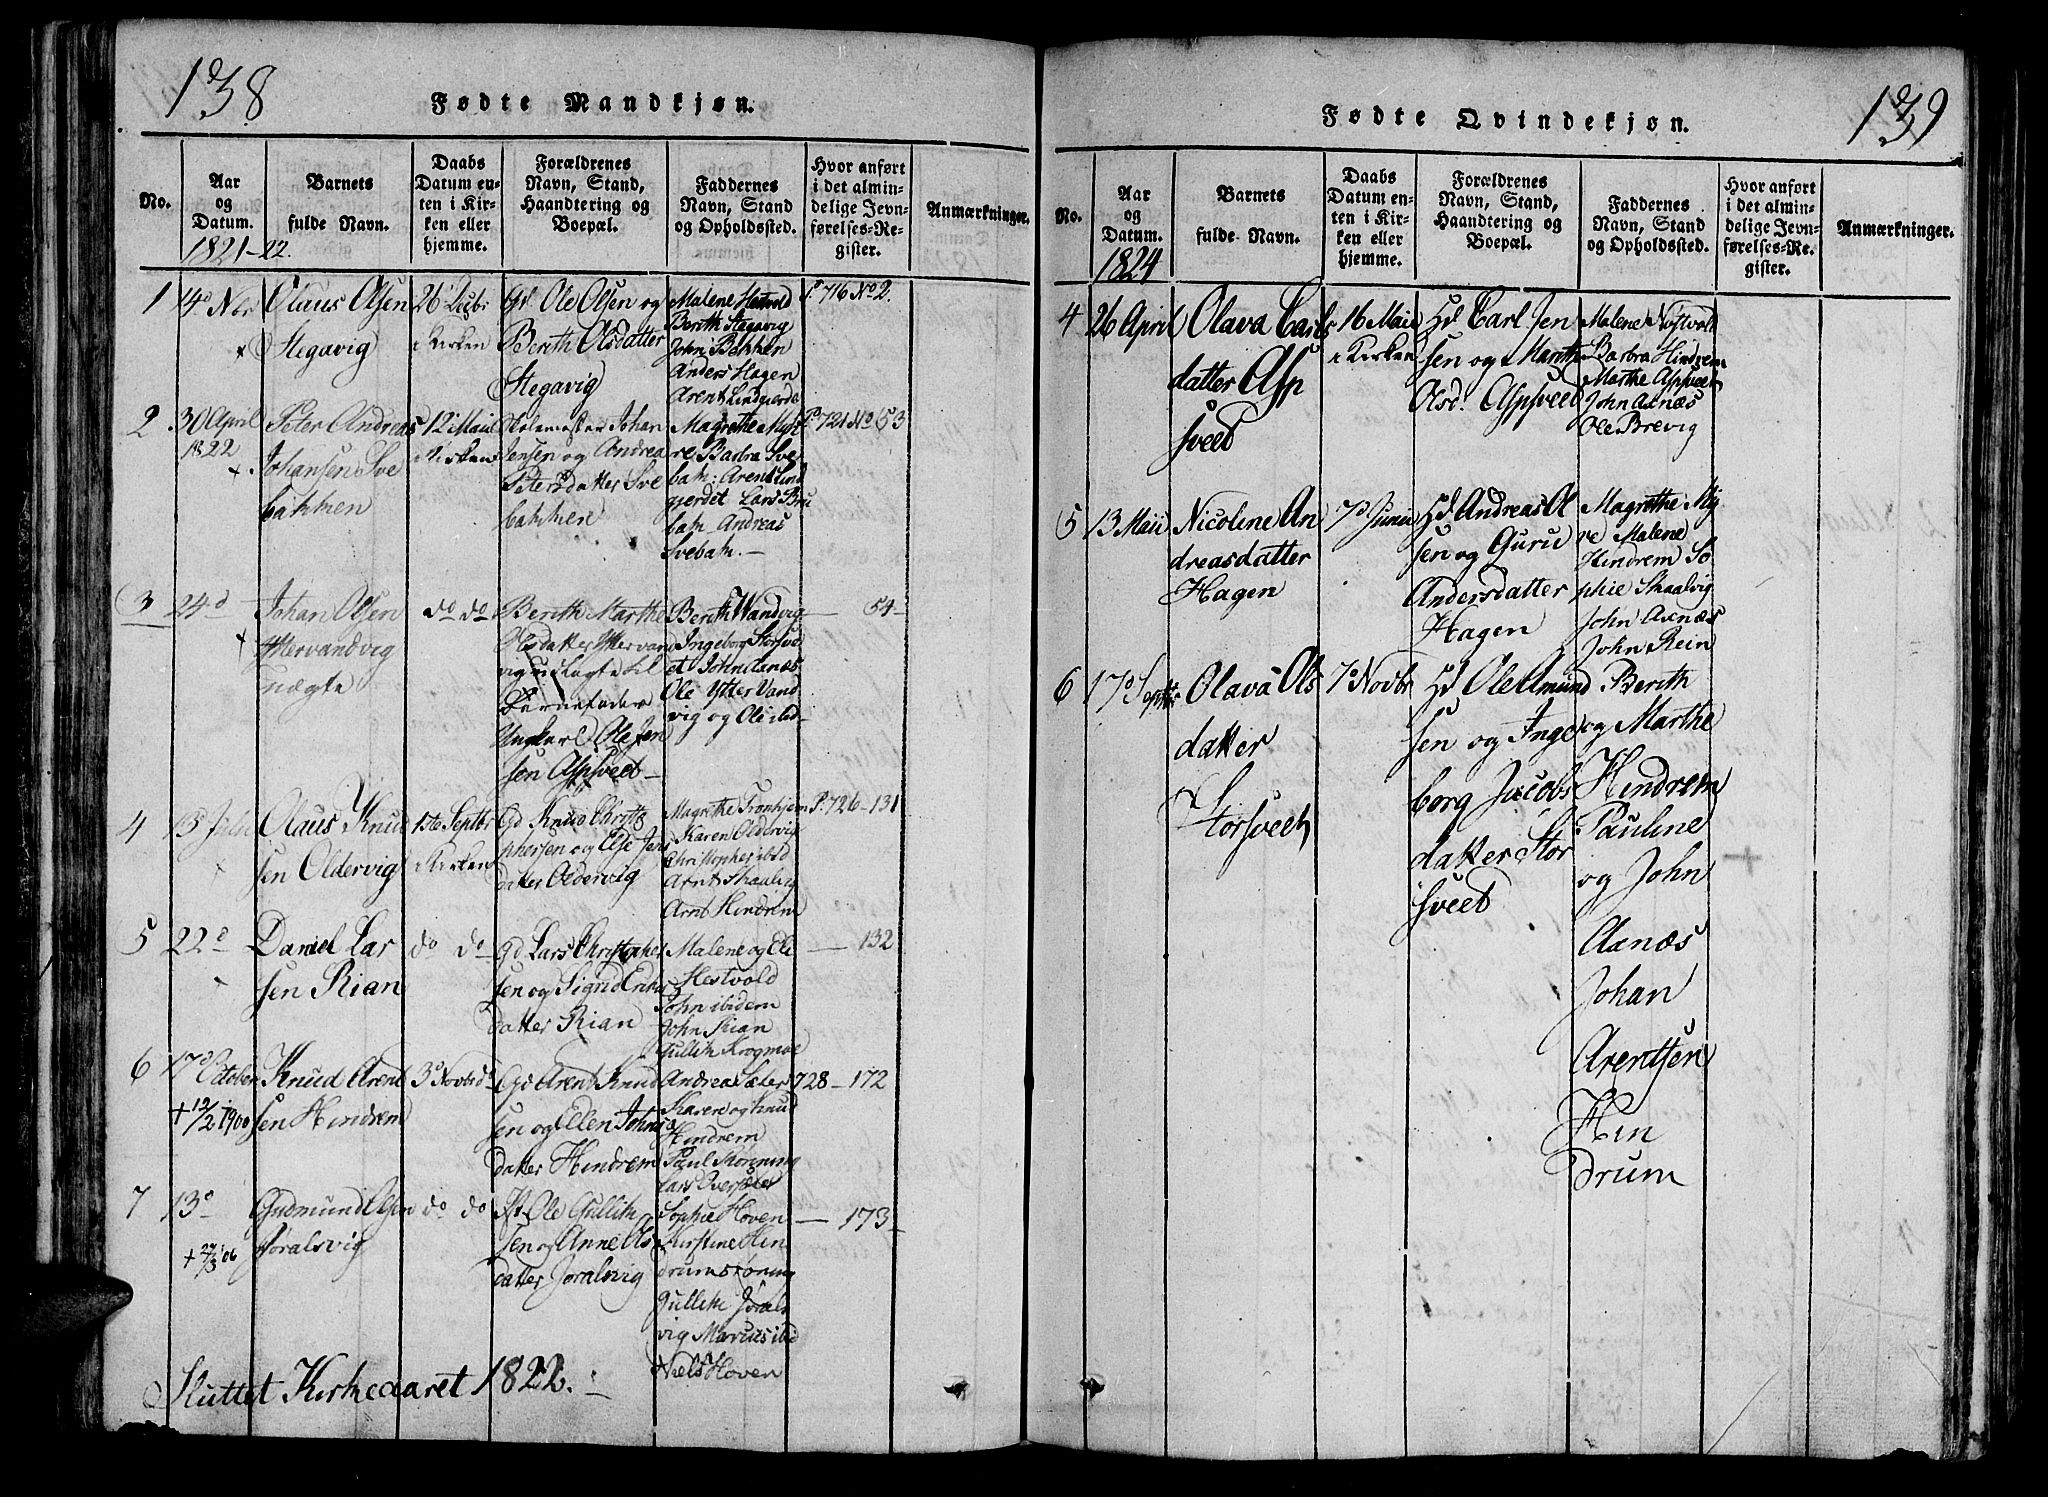 138
Fødte Mandkjøn.
No.
Aar
og
Datum.
1821-22.
Barnets
fulde Navn.
Daabs
Datum en-
ten i Kir-
ken eller
hjemme.
Forældrenes
Navn, Stand,
Haandtering og
Boepæl.
Faddernes
Navn, Stand
og Opholdssted.
Hvor anført
i det almin-
delige Jevn-
førelses-Re-
gister.
Anmærkninger.
1
Claus Olsen
Stegavig
i Kirken
Ole Olsen og
Berith Olsdatter
Stegavig
Malene
Berith Stegavig
John Bakken
Anders Hagen
Arent
P. 716 No 2.
2
30 April
1822
Peter Andreas
Johansen Sve
bakken
12 Maii
i Kirken
Johan
Jensen og Andrea
Petersdatter Sve
bakken
Magrethe Myh
re Barbra Sve
bak: Arent Lind
gjerdet Lars Bru
bak Andreas
Svebak.—
P. 721 No 53
3
24 d
Johan Olsen
Yttervandvig
uægte
do do
Berith Marthe
Olsdatter Yttervand
vig udlagte til
Barnefader
Ungkarl Ole Jen
sen Aspsveet—
Berith Wandvig
Ingeborg Storsve
et John Axnæs
Ole Ytter Vand
vig og Ole ibid-
— 54-
4
Claus Knud
sen Oldervig
1ste Septbr
i Kirken
Gd Knud Christo
phersen og Else Jens
datter Oldervig
Magrethe Tronhjem
Karen Oldervig
Christopher ibid
Arnt Skaalvig
Arnt Hindrem
P. 726 - 131
5
22 d
Daniel Lar
sen Rian
do do
Gd Lars Christopher
sen og Sigrid Eriks
datter Rian
Malene og Eli
Hestvold
John ibidem
John Rian
Gullik Krogmoe
— 132
6
17 d October
+ 12/2 1900
Knud Arent
sen Hindrem
3 d Novbr do
Gd Arent Knud
sen og Ellen Johns
datter Hindrem
Andrea Sæter
Karen og Knud
Hindrem
Paul Størening
Lars Oversæter
728 - 172
7
13 d
Gudmund Olsen
Joralsvig
do do
Ole Gullik
sen og Anne Ols
datter Joralsvig
Sophie Hoven
Kirstine Hin
drumstøning
Gullik Jørals
vig Marius ibid
Niels Hoven
— 173
Sluttet Kirkeaaret 1822.
139
Fødte Qvindekjøn.
No.
Aar
og
Datum.
1824
Barnets
fulde Navn.
Daabs
Datum en-
ten i Kir-
ken eller
hjemme.
Forældrenes
Navn, Stand,
Haandtering og
Boepæl.
Faddernes
Navn, Stand
og Opholdssted.
Hvor anført
i det almin-
delige Jevn-
førelses-Re-
gister.
Anmærkninger.
4
26 April
Olava Carls
datter Asp
sveet
16 Maii
i Kirken
Carl Jen
sen og Marith
Olsd. Aspsveet
Malene
Barbra Hindrem
Marthe Aspsveet
John Axnæs
Ole Brevig
5
13 Maii
Nicoline An
dreasdatter
Hagen
7 d Junii
Andreas Ol
sen og Guru
Andersdatter
Hagen
Magrethe My
re Malene
Hindrem So
phie Skaalvig
John Axnæs
John Rein
6
17 d Septbr
Olava Ols
datter
Storsveet
7 d Novbr
Ole Amund
sen og Inge
borg Jacobs
datter Stor
sveet
Berith
og Marthe
Hindrem
Pauline
og John
Axnæs
Johan
Arentsen
Hin
drum
+